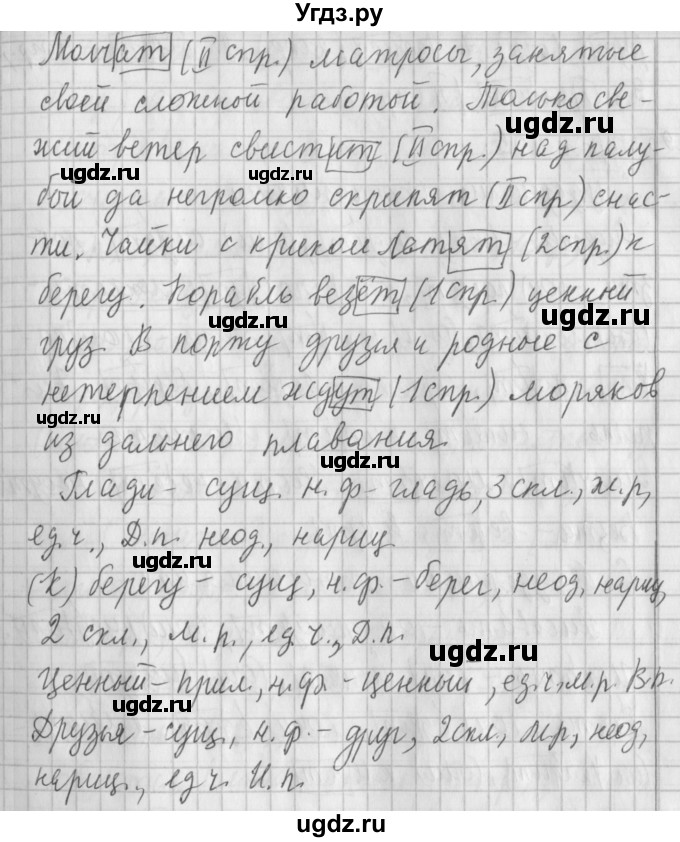 Угдз.ру
Молчат (II спр.) матросы, занятые
своей сложной работой. Только све-
ugdz.ru
жий ветер свистит (II спр.) над палу-
ugdz.ru ugdz.ru
бой да негромко скрипят (II спр) снас-
ти. Чайки с криком летят (2 спр.) к
берегу. Корабль везёт (1 спр.) ценный
ugdz.ru ugdz.ru
груз В порту друзья и родные с
нетерпением ждут (1 спр.) моряков
ugdz.ru
из дальнего плавания.
ugdz.ru
Глади - сущ. н.ф - гладь, 3 скл., ж.р,
ед.ч., Д.п. неод., нариц
ugdz.ru
(к) берегу - сущ, н.ф. - берег, неод, нариц,
2 скл., м.р., ед.ч., Д.п.
ugdz.ru
Ценный - прил., н.ф - ценный, ед.ч, м.р. В.п.
ugdz.ru
Друзья - сущ., н.ф. - друг, 2 скл, м.р, неод,
ugdz.ru
нариц., ед.ч. И.п.
ugdz.ru
ugdz.ru